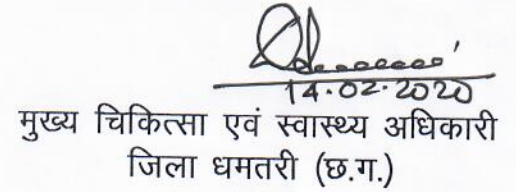 14.02.2020
मुख्य चिकित्सा एवं स्वास्थ्य अधिकारी
जिला धमतरी (छ.ग.)